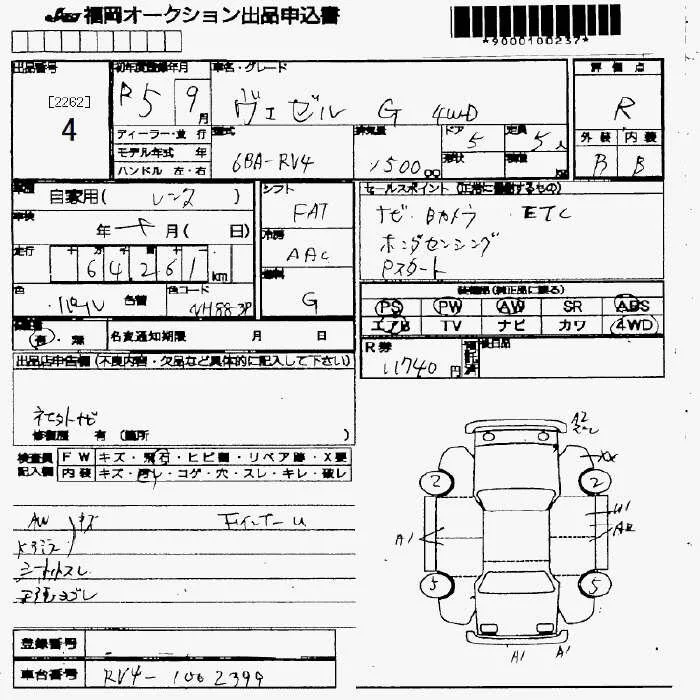 JU 福岡オークション出品申込書
*9000100237*
出品番号 初年度登録年月 車名・グレード 評価点
[2262] R5 9月 ヴェゼル G 4WD R
4
外装 内装
B B
ディーラー・並行 型式 排気量 ドア 定員
モデル年式 年 6BA-RV4 1500cc 5 5人
ハンドル 左・右 形状
自家用(レンタ) シフト セールスポイント(正常に機動するもの)
FAT ナビ Bカメラ ETC
車検 年 月(日) 冷房 ホンダセンシング
走行 AAC Pスタート
64261km 燃料
色 パール 色替 色コード NH883P G
装備品(純正品に限る)
PS PW AW SR ABS
エアB TV ナビ カワ 4WD
有・無 名変通知期限 月 日
R券 11740円 預託済 後日品
出品店申告欄(不良内容・欠品など具体的に記入して下さい)
修復歴 有(箇所 )
検査員 FW キズ・飛石・ヒビ割・リペア跡・X要
記入欄 内装 キズ・コゲ・穴・スレ・キレ・破レ
AW キズ
シートスレ
A2
XX
2 2
U1
A1 A2
5 5
A1 A1
登録番号
車台番号 RV4-1002399